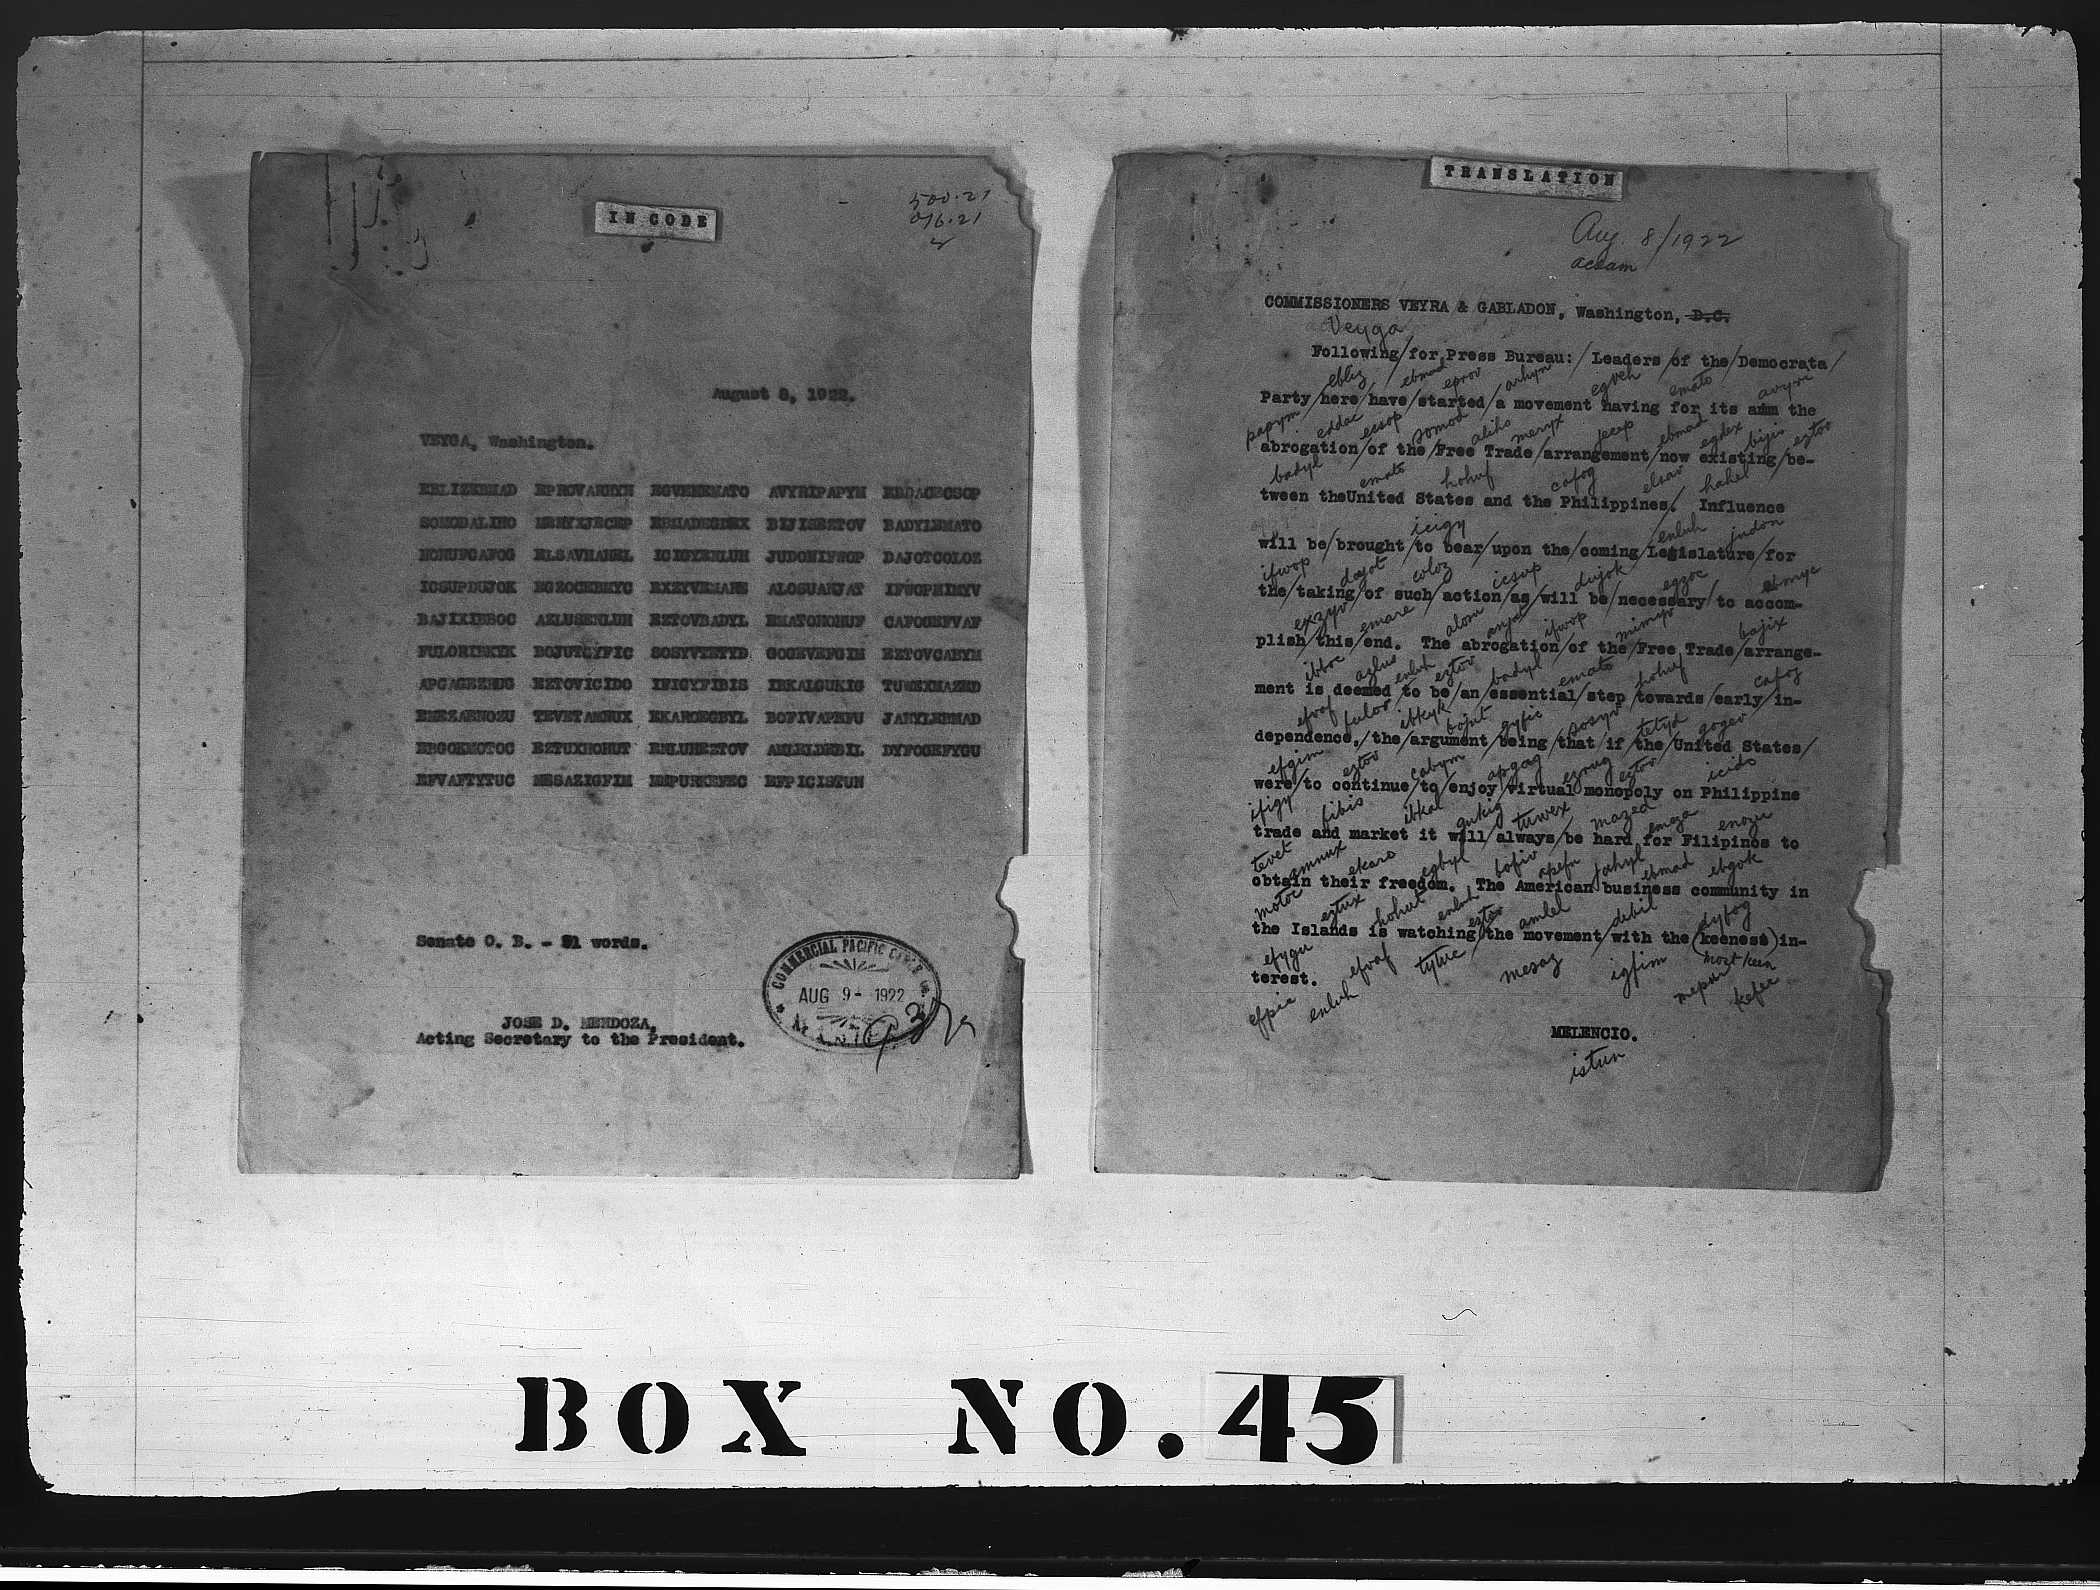 IN CODE
500.21
076.21
August 8, 1922.
VEYGA, Washington.
EBLIZEBMAD EPROVARHYN EGVEHEMATO AVYRIPAPYM EDDACECSOP
SOMODALIHO MERYXJECEP EBMADEGDEX BIJISEZTOV BADYLEMATO
HOHUFCAFOG ELSAVHAHEL ICIGYENLUH JUDONIFWOP DAJOTCOLOZ
ICSUPDUJOK EGZOCEBMYC EXZYVEMARE ALOSUANJAT IFWOPMIMYV
BAJIXIBBOC AZLUSENLUH EZTOVBADYL EMATOHOHUF CAFOGEFVAF
FULORIBKYK BOJUTGYFIC SOSYVTETYD GOGEVEFGIM EZTOVCABYM
APGAGEZRUG EZTOVICIDO IFIGYFIBIS IBKALGUKIG TUWEXMAZED
EMEZAENOZU TEVETAMNUX EKAROEGBYL BOFIVAPEFU JAHYLEBMAD
EBGOKMOTOC EZTUXHOHUT ENLUHEZTOV AMLELDEBIL DYFOGEFYGU
EFVAFTYTUC MESAZIGFIM MEPURKEFEC EFPICISTUN
Senate O. B. - 91 words.
COMMERCIAL PACIFIC CABLE
AUG 9- 1922
JOSE D. MENDOZA,
Acting Secretary to the President.
TRANSLATION
Aug. 8/1922
COMMISSIONERS VEYRA & GABLADON, Washington, D.C.
Veyga
Following/for Press Bureau:/Leaders/of the/Democrata/
ebliz ebmad eprov arhyn egveh emato avyri
Party/here/have/started/a movement having for its aim the
papym eddac ecsop somod aliho meryx jecep ebmad egdex bijis eztov
abrogation/of the/Free Trade/arrangement/now existing/be-
badyl emato hohuf cafog elsav hahel
tween theUnited States and the Philippines. Influence
icigy enluh judon
will be/brought/to bear/upon the/coming/Legislature/for
ifwop dajot coloz icsup dujok egzoc ebmyc
the/taking/of such/action/as/will be/necessary/to accom-
exzyv emare alosu anjat ifwop mimyv bajix
plish/this/end. The abrogation/of the/Free Trade/arrange-
ibboc azlus enluh eztov badyl emato hohuf cafog
ment is deemed/to be/an/essential/step/towards/early/in-
efvaf fulor ibkyk bojut gyfic sosyv tetyd gogev
dependence,/the/argument/being/that/if/the/United States/
efgim eztov cabym apgag ezrug eztov icido
were/to continue/to/enjoy/virtual monopoly on Philippine
ifigy fibis ibkal gukig tuwex mazed emeza enozu
trade and market it will/always/be hard for Filipinos to
tevet amnux ekaro egbyl bofiv apefu jahyl ebmad ebgok
obtain their freedom. The American business community in
motoc eztux hohut enluh eztov amlel debil dyfog
the Islands is watching/the movement/with the (keenest)in-
efygu efvaf tytuc mesaz igfim most keen
terest.
efpic enluh mepur kefec
MELENCIO.
istun
BOX NO. 45